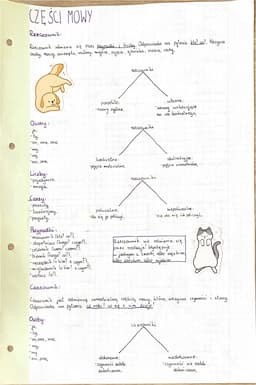 CZĘŚCI MOWY
Rzeczownik:
Rzeczownik odmienia się przez przypadki i liczby. Odpowiada na pytania kto? co?. Nazywa
osoby, rzeczy, zwierzęta, rośliny, zjawiska
rzeczownik
pospolite:
własne:
- nazwy ogólne,
- nazwy
Osoby:
- ja,
- ty,
- on, ona, ono,
- my,
- wy,
- oni, one.
rzeczownik
konkretne:
abstrakcyjne:
Liczby:
- pojedyncza
- mnoga
rzeczownik
Czasy:
- przeszły
- teraźniejszy
- przyszły
policzalne:
niepoliczalne:
- da się je policzyć,
- nie da się ich policzyć.
Przypadki:
- mianownik (kto? co?),
- dopełniacz (kogo? czego?),
- celownik (komu? czemu?),
- biernik (kogo? co?),
- narzędnik (z kim? z czym?),
- miejscownik (o kim? o czym?),
- wołacz (o!)
Rzeczownik nie odmienia się
przez rodzaje! Występuje
w jednym z trzech:
Czasownik:
Czasownik jest odmienną samodzielną częścią mowy, która wskazuje czynności i stany.
Odpowiada na pytania: co robi? co się z nim dzieje?
Osoby:
- ja,
- ty,
- on, ona, ono,
- my,
- wy,
- oni, one.
czasowniki
dokonane:
niedokonane:
- czynność została
- czynność nie została
zakończona.
zakończona.